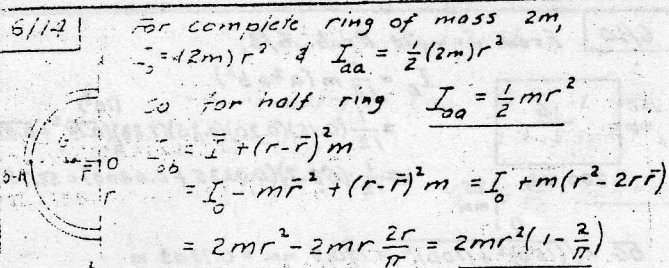 6/14 For complete ring of mass 2m,
I_o = (2m)r² & I_aa = ½(2m)r²
so for half ring I_aa = ½mr²
I_bb = Ī + (r-r̄)²m
= I_o - mr̄² + (r-r̄)²m = I_o + m(r² - 2rr̄)
= 2mr² - 2mr 2r/π = 2mr²(1 - 2/π)
O
r